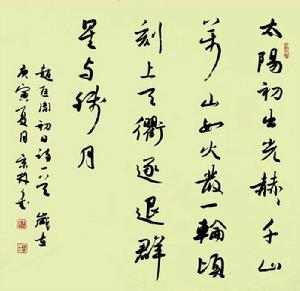 太陽初出光赫〻千山
萬山如火發一輪頃
刻上天衢逐退群
星与残月
趙匡胤初日詩 歲在
庚寅夏月